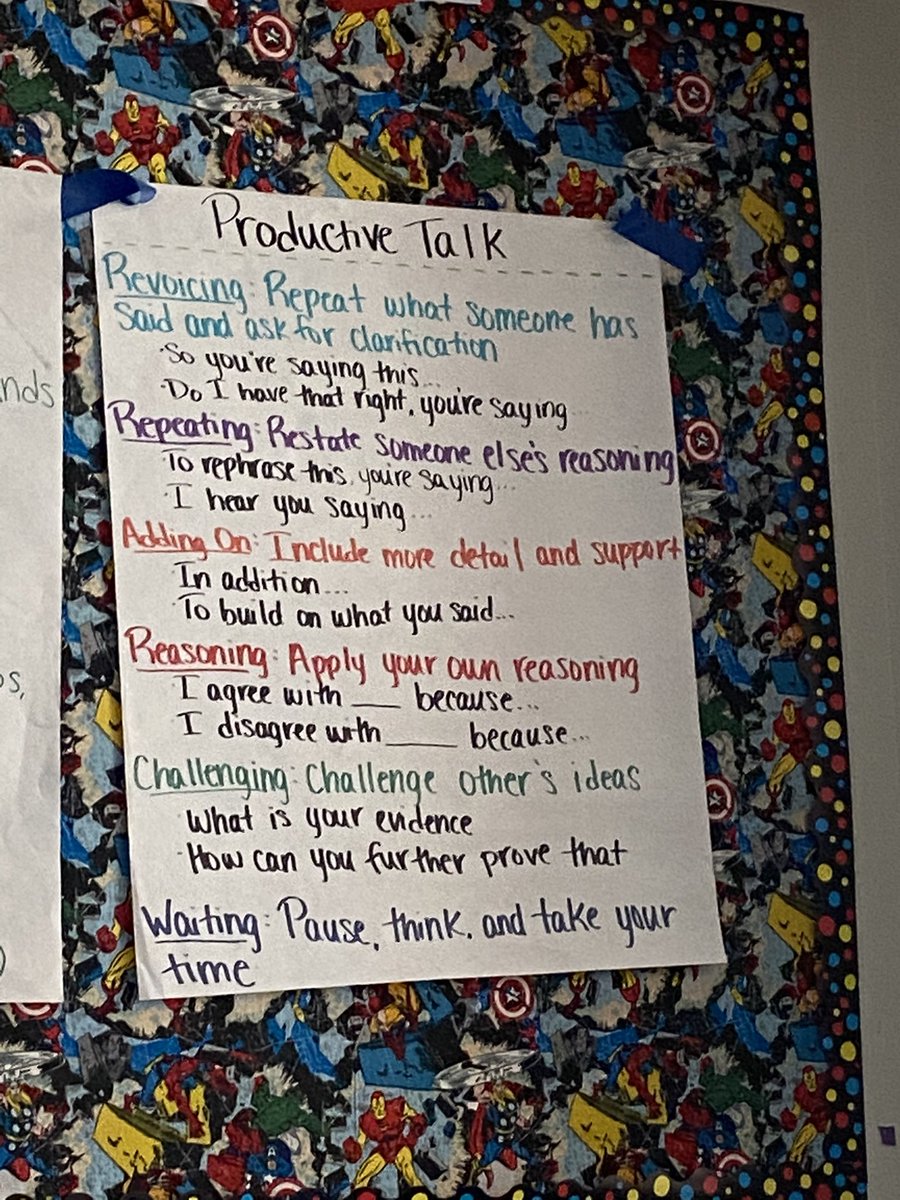 Productive Talk
Revoicing: Repeat what someone has
said and ask for clarification
·So you're saying this...
·Do I have that right, you're saying...
Repeating: Restate someone else's reasoning
·To rephrase this, you're saying...
·I hear you saying...
Adding On: Include more detail and support
·In addition...
·To build on what you said...
Reasoning: Apply your own reasoning
·I agree with ___ because...
·I disagree with ____ because...
Challenging: Challenge other's ideas
·What is your evidence
·How can you further prove that
Waiting: Pause, think, and take your
time